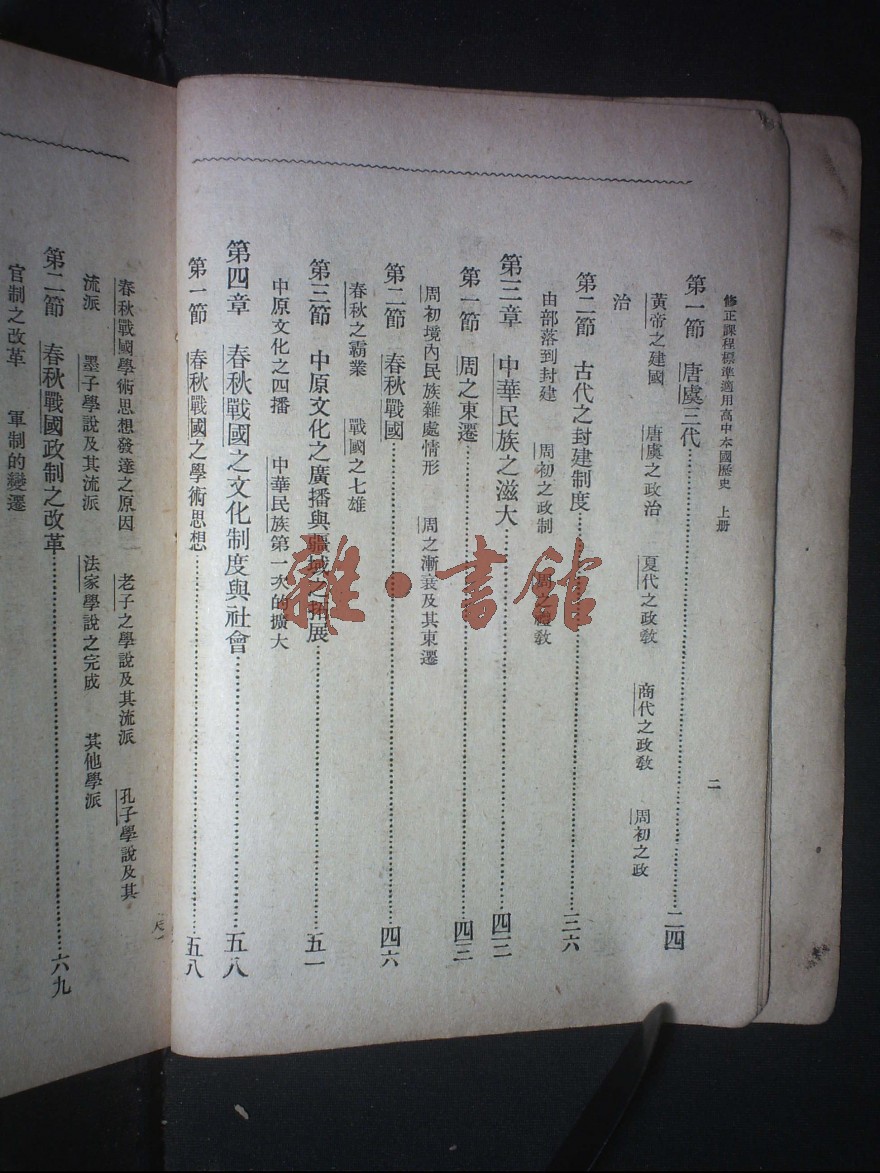 修正課程標準適用高中本國歷史 上册
二
第一節 唐虞三代……二四
黃帝之建國 唐虞之政治 夏代之政敎 商代之政敎 周初之政
治
第二節 古代之封建制度……三六
由部落到封建 周初之政制 周之禮敎
第三章 中華民族之滋大……四三
第一節 周之東遷……四三
周初境內民族雜處情形 周之漸衰及其東遷
第二節 春秋戰國……四六
春秋之霸業 戰國之七雄
第三節 中原文化之廣播與疆域之拓展……五一
中原文化之四播 中華民族第一次的擴大
第四章 春秋戰國之文化制度與社會……五八
第一節 春秋戰國之學術思想……五八
春秋戰國學術思想發達之原因 老子之學說及其流派 孔子學說及其
流派 墨子學說及其流派 法家學說之完成 其他學派
第二節 春秋戰國政制之改革……六九
官制之改革 軍制的變遷
雜·書館